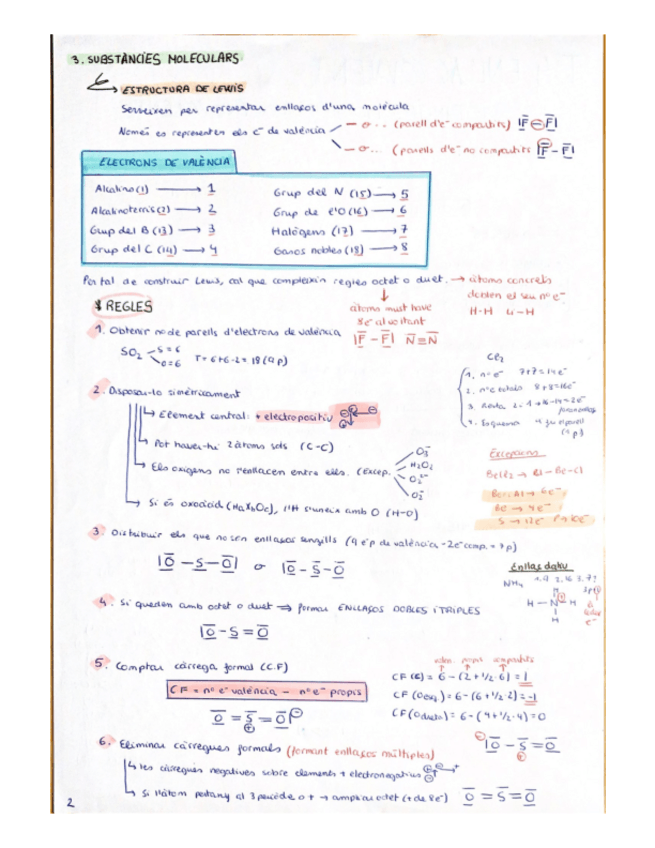 3. SUBSTÀNCIES MOLECULARS
ESTRUCTURA DE LEWIS
Serveixen per representar enllaços d'una molècula
Només es representen els e⁻ de valència
— o .. (parell d'e⁻ compartits) |F̅ – F̅|
— o ... (parells d'e⁻ no compartits |F̅ - F̅|
ELECTRONS DE VALÈNCIA
Alcalins (1) → 1
Alcalinoterris (2) → 2
Grup del B (13) → 3
Grup del C (14) → 4
Grup del N (15) → 5
Grup de l'O (16) → 6
Halògens (17) → 7
Gasos nobles (18) → 8
Per tal de construir Lewis, cal que compleixin regles octet o duet. → àtoms concrets
donen el seu nº e⁻
H-H Li-H
àtoms must have
8e⁻ al voltant
|F̅ - F̅| N̅≡N̅
REGLES
1. Obtenir nº de parells d'electrons de valència
SO₂ S=6 O=6 T=6+6·2=18 (9p)
Cl₂
1. nº e⁻ 7+7=14e⁻
2. nº e⁻ octets 8+8=16e⁻
3. Resta
4. Esquema
2. Disposar-lo simètricament
Element central: + electropositiu
Pot haver-hi 2 àtoms sols (C-C)
Els oxígens no s'enllacen entre ells. (Excep.
O₃
H₂O₂
O₂²⁻
O₂⁻
Si és oxoàcid (HaXbOc), l'H s'uneix amb O (H-O)
Excepcions
BeCl₂ → Cl-Be-Cl
B, Al → 6e⁻
Be → 4e⁻
S → 12e⁻ P → 10e⁻
3. Distribuir els que no sén enllaços senzills (9 e⁻p de valència - 2e⁻comp. = 7p)
|O̅ – S – O̅| o |O̅ - S̅ - O̅
Enllaç datiu
NH₄
H – N – H
4. Si queden amb octet o duet ⇒ formar ENLLAÇOS DOBLES i TRIPLES
|O̅ - S̅ = O̅
5. Comptar càrrega formal (C.F)
CF = nº e⁻ valència – nº e⁻ propis
O̅ = S̅ = O̅
valen. propis compartits
CF (S) = 6 - (2 + 1/2 · 6) = 1
CF (Oesq.) = 6 - (6 + 1/2 · 2) = -1
CF (Odreta) = 6 - (4 + 1/2 · 4) = 0
6. Eliminar càrregues formals (formant enllaços múltiples)
|O̅ - S̅ = O̅
Les càrregues negatives sobre elements + electronegatius
Si l'àtom pertany al 3 període o + → ampliar octet (+ de 8e⁻) O̅ = S̅ = O̅
2